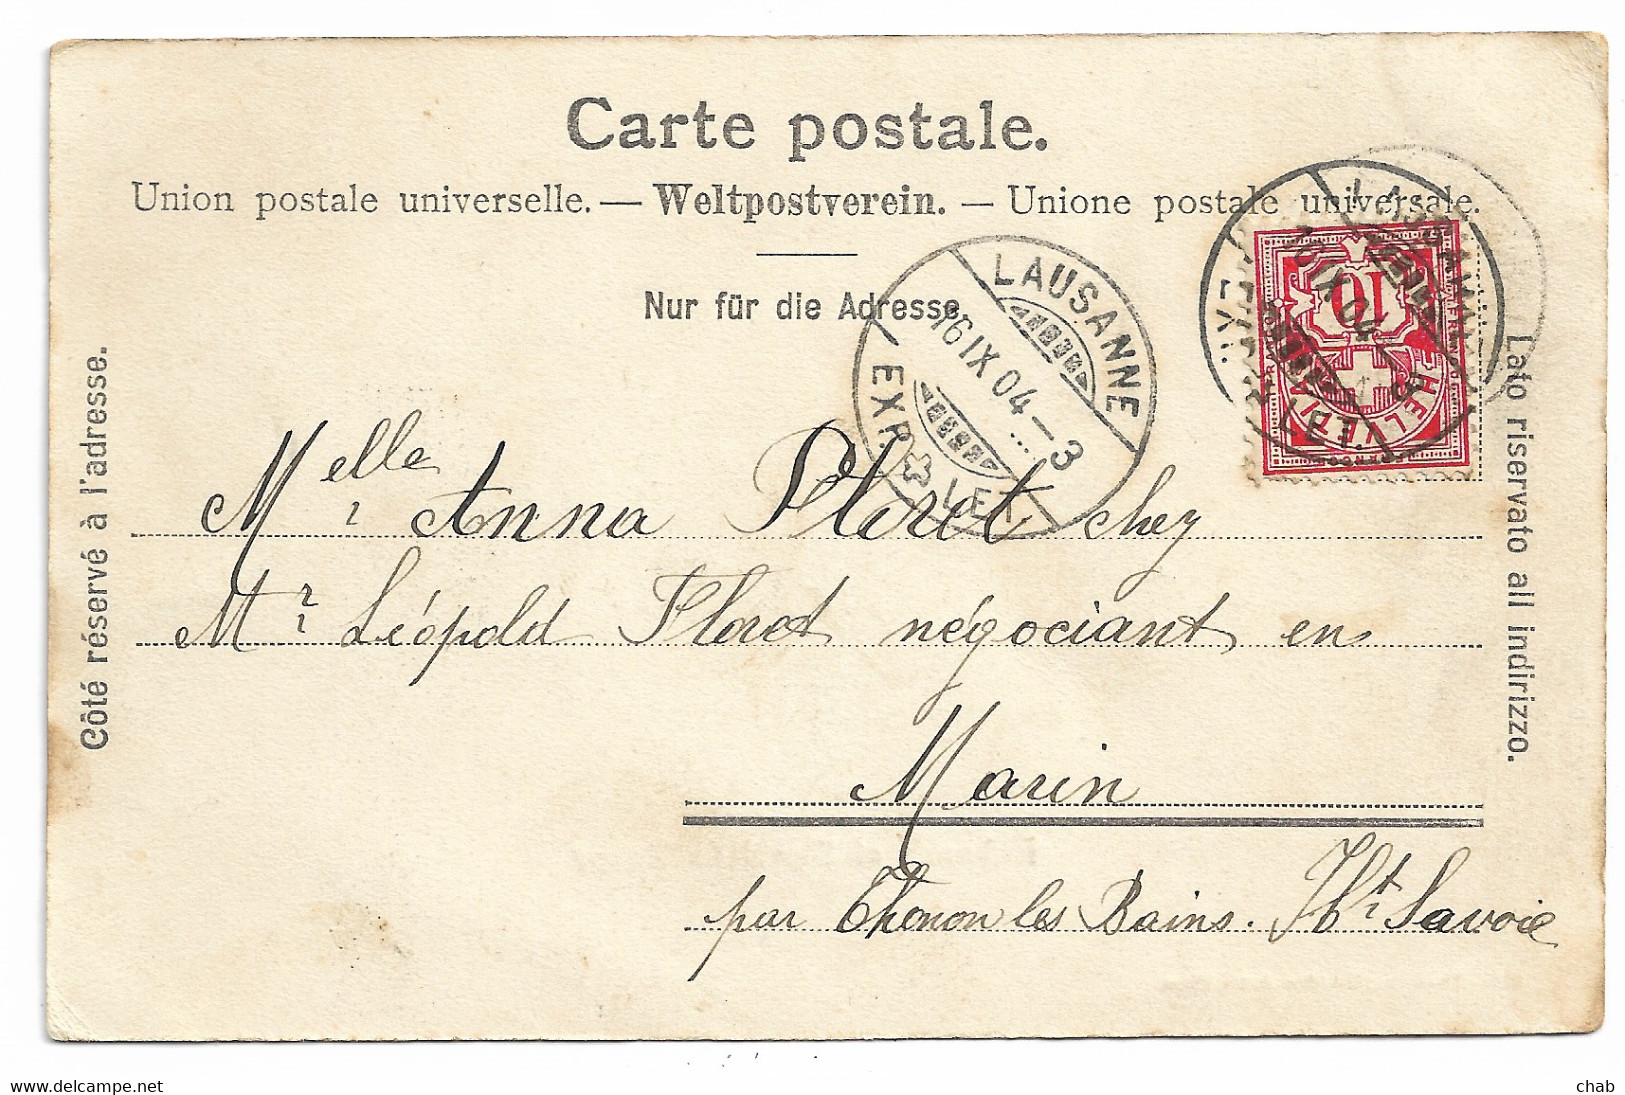 Carte postale.
Union postale universelle. — Weltpostverein. — Unione postale universale.
Nur für die Adresse.
Côté réservé à l'adresse.
Lato riservato all indirizzo.
LAUSANNE
16 IX 04 – 3
EXP. LET.
10
HELVETIA
Melle Anna Floret chez
Mr Léopold Floret négociant en
Marin
par Thonon les Bains. Hte Savoie
www.delcampe.net
chab